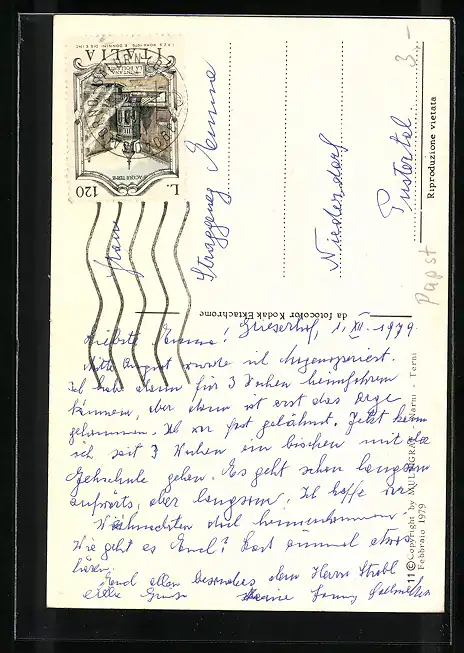 3.-
ITALIA
ACQUI TERME
L. 120
Frau
Emma
Niederdorf
Pustertal
Riproduzione vietata
Papst
da fotocolor Kodak Ektachrome
11 © Copyright by Narni - Terni
Febbraio 1979
Grieserhof, 1. XII. 1979
Liebste Emma!
Mitte August wurde ich Augenoperiert.
Ich habe dann für 3 Wochen heimfahren
können, aber dann ist erst das Arge
gekommen. Ich war fast gelähmt. Jetzt kann
ich seit 3 Wochen ein bischen mit der
Gehschule gehen. Es geht schon langsam
aufwärts, aber langsam. Ich hoffe vor
Weihnachten doch heimzukommen.
Wie geht es Euch? Last einmal etwas
hören.
Euch allen besonders dem Herrn Strobl
liebe Grüsse Fanny